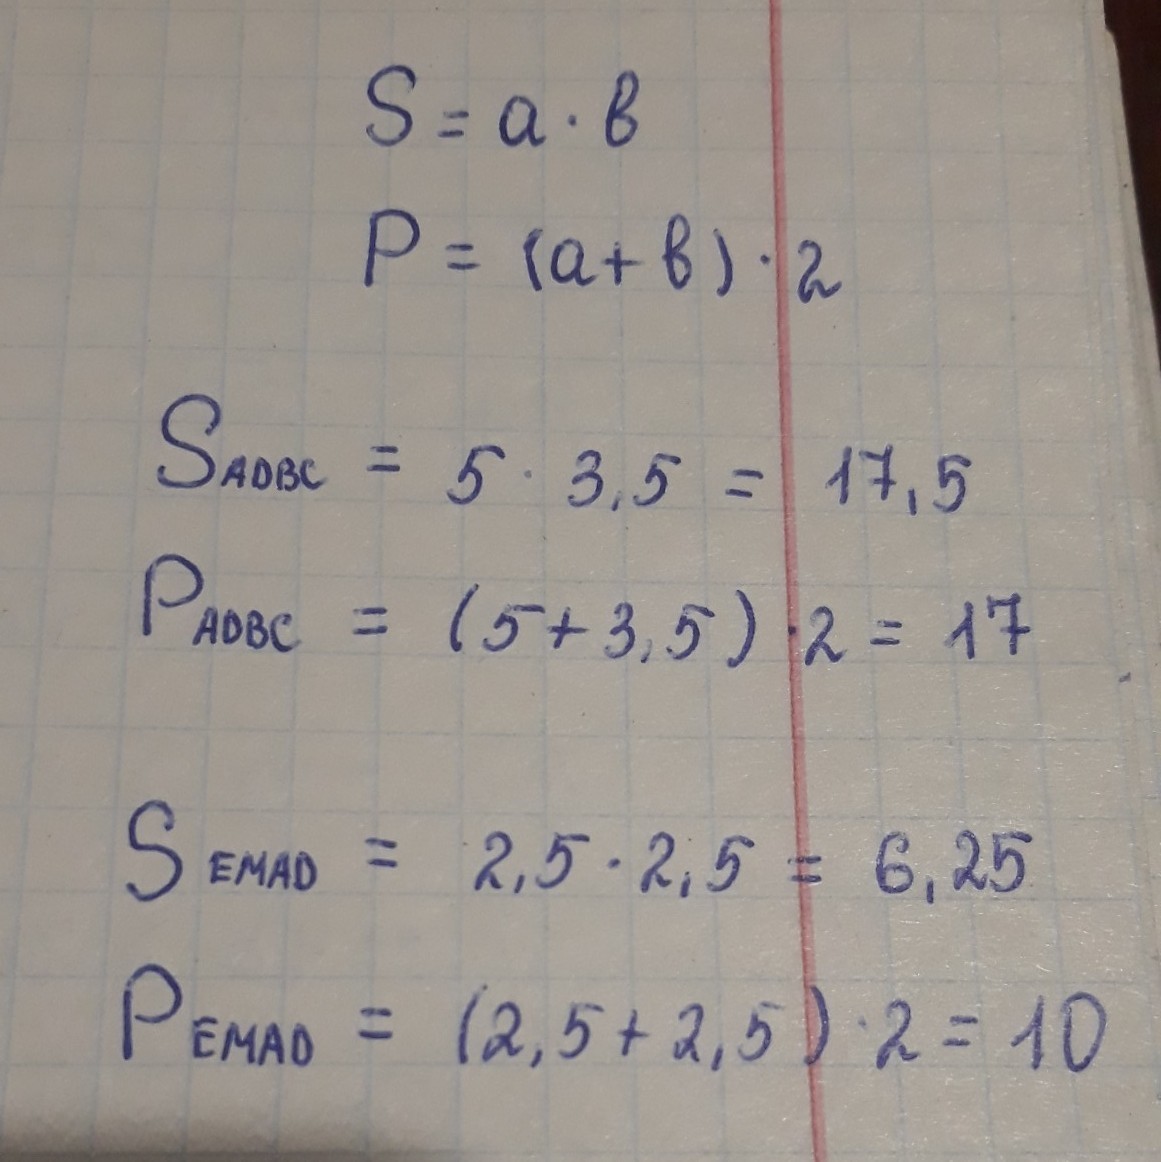 S = a · b
P = (a + b) · 2
S ADBC = 5 · 3,5 = 17,5
P ADBC = (5 + 3,5) · 2 = 17
S EMAD = 2,5 · 2,5 = 6,25
P EMAD = (2,5 + 2,5) · 2 = 10